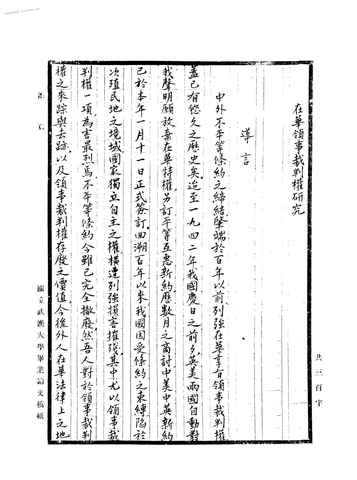 在華領事裁判權研究
導言
中外不平等條約之締結肇端於百年以前列強在華享有領事裁判權
蓋已有悠久之歷史矣迨至一九四二年我國慶日之前夕英美兩國自動對
我聲明願放棄在華特權另訂平等互惠新約歷數月之商討中美中英新約
已於本年一月十一日正式簽訂回溯百年以來我國因受條約之束縛陷於
次殖民地之境域國家獨立自主之權橫遭列強損害摧殘其中尤以領事裁
判權一項為害最烈焉不平等條約今雖已完全撤廢然吾人對於領事裁判
權之來踪與去跡以及領事裁判權存廢之價值今後外人在華法律上之地
共三百字
國立武漢大學畢業論文稿紙